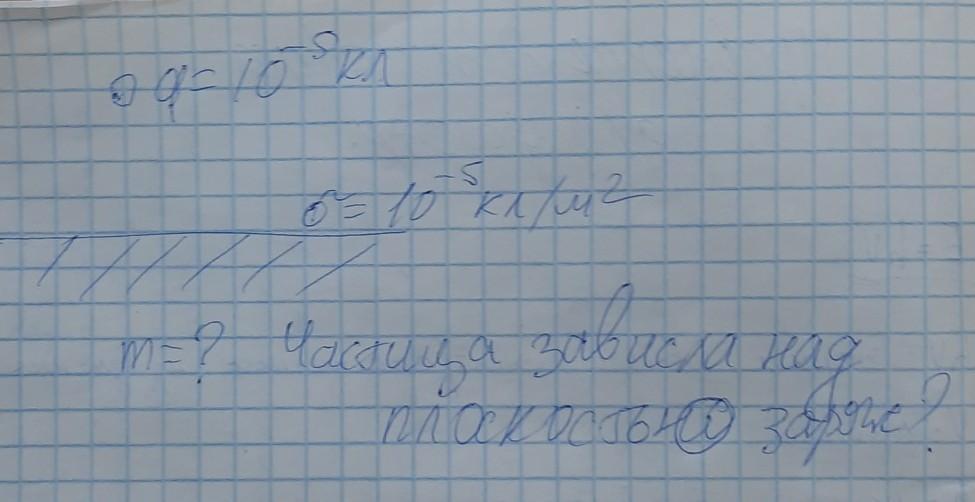 q = 10⁻⁵ кл
σ = 10⁻⁵ кл/м²
m = ? Частица зависла над
плоскостью заряж?